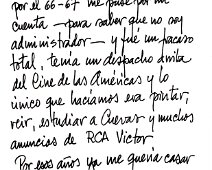 por el 66-67 me puse por mi
cuenta — para saber que no soy
administrador — y fué un fracaso
total, tenía un despacho arriba
del Cine de las Américas y lo
único que hacíamos era pintar,
reir, estudiar a Cuevas y muchos
anuncios de RCA Victor
Por esos años ya me quería casar